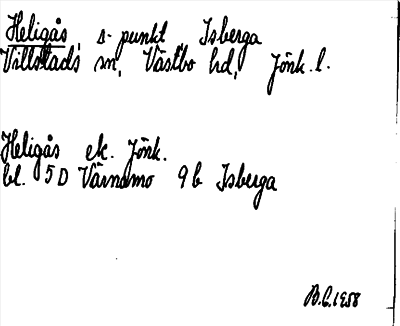 Heligås, s-punkt Isberga
Villstads sn, Västbo hd, Jönk. l.
Heligås ek. Jönk.
bl. 5 D Värnamo 9 b Isberga
B.C. 1958